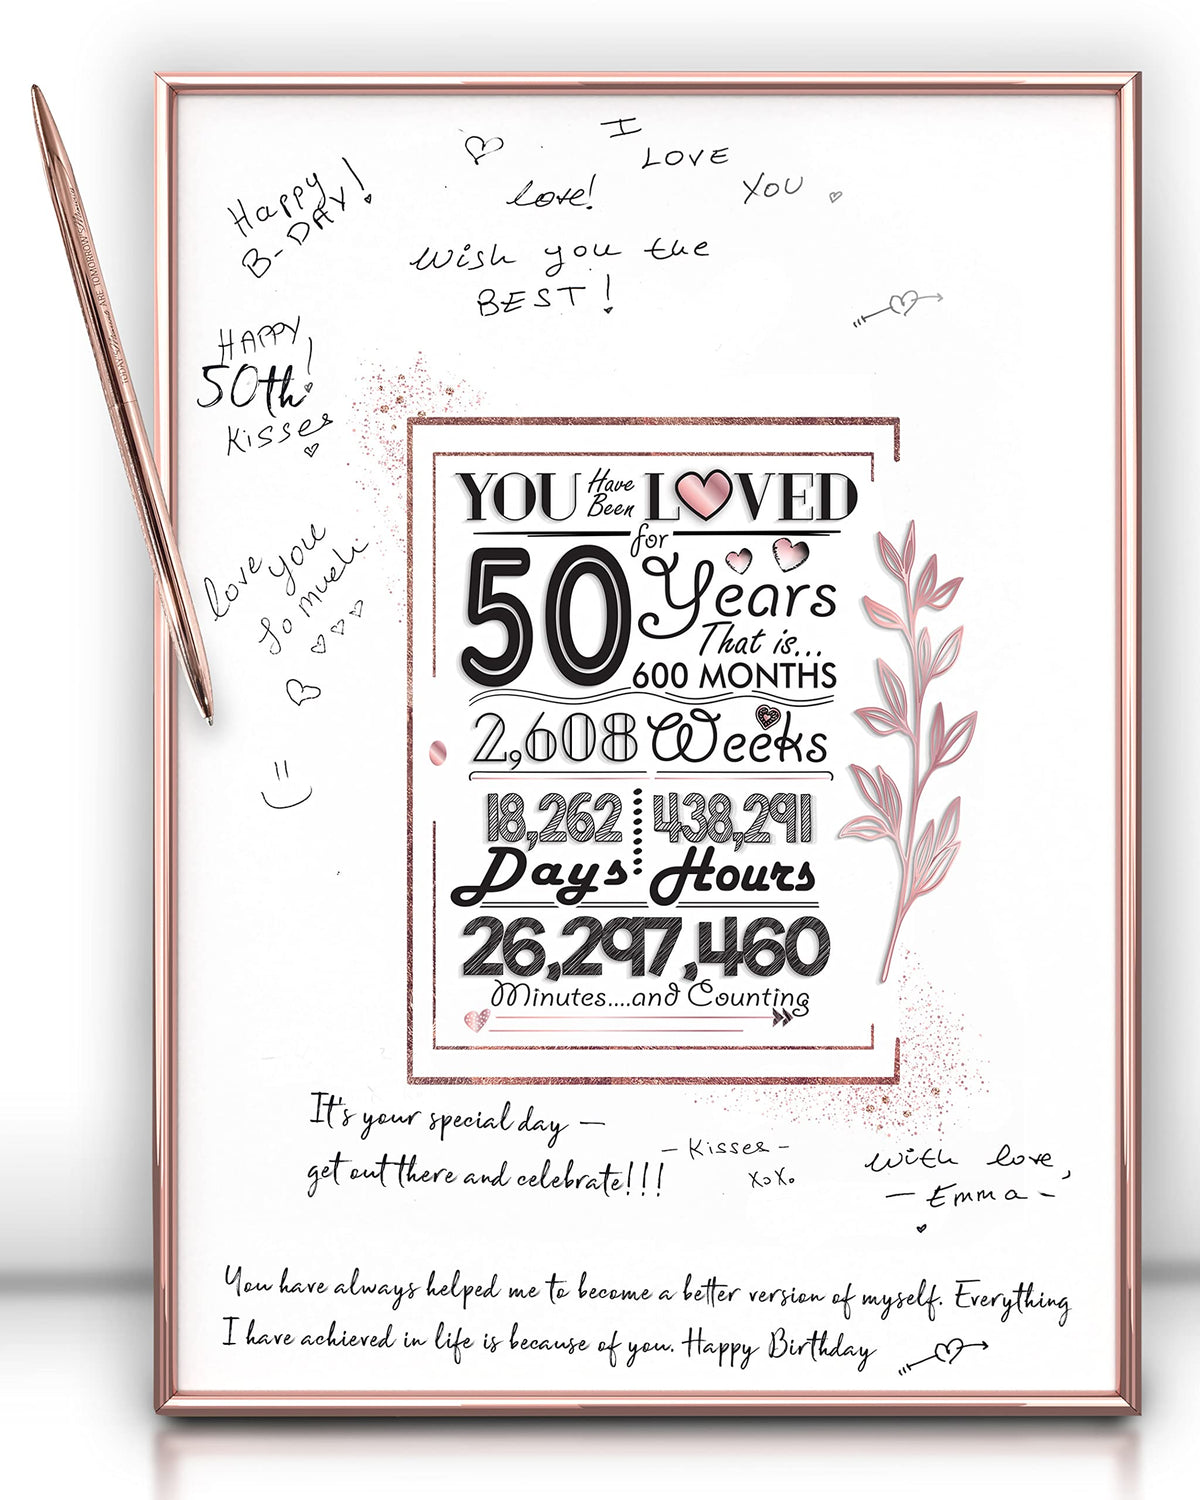 I
LOVE
YOU
love!
Happy
B-DAY!
Wish you the
BEST!
HAPPY
50th!
Kisses
love you
so much
YOU Have Been LOVED
for
50 Years
That is...
600 MONTHS
2,608 Weeks
18,262 438,291
Days Hours
26,297,460
Minutes....and Counting
It's your special day –
get out there and celebrate!!!
- Kisses -
XoXo
With love,
- Emma -
You have always helped me to become a better version of myself. Everything
I have achieved in life is because of you. Happy Birthday